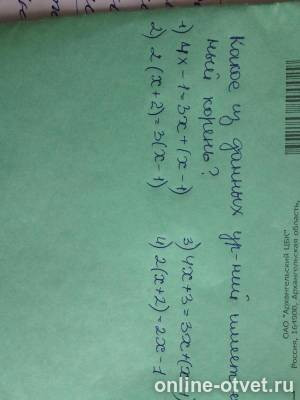 Какое из данных ур-ний имеет
ный корень?
1) 4x - 1 = 3x + (x - 1)
2) 2(x + 2) = 3(x - 1)
3) 4x + 3 = 3x + (x
4) 2(x + 2) = 2x - 1
ОАО "Архангельский ЦБК"
Россия, 164900, Архангельская область,
online-otvet.ru